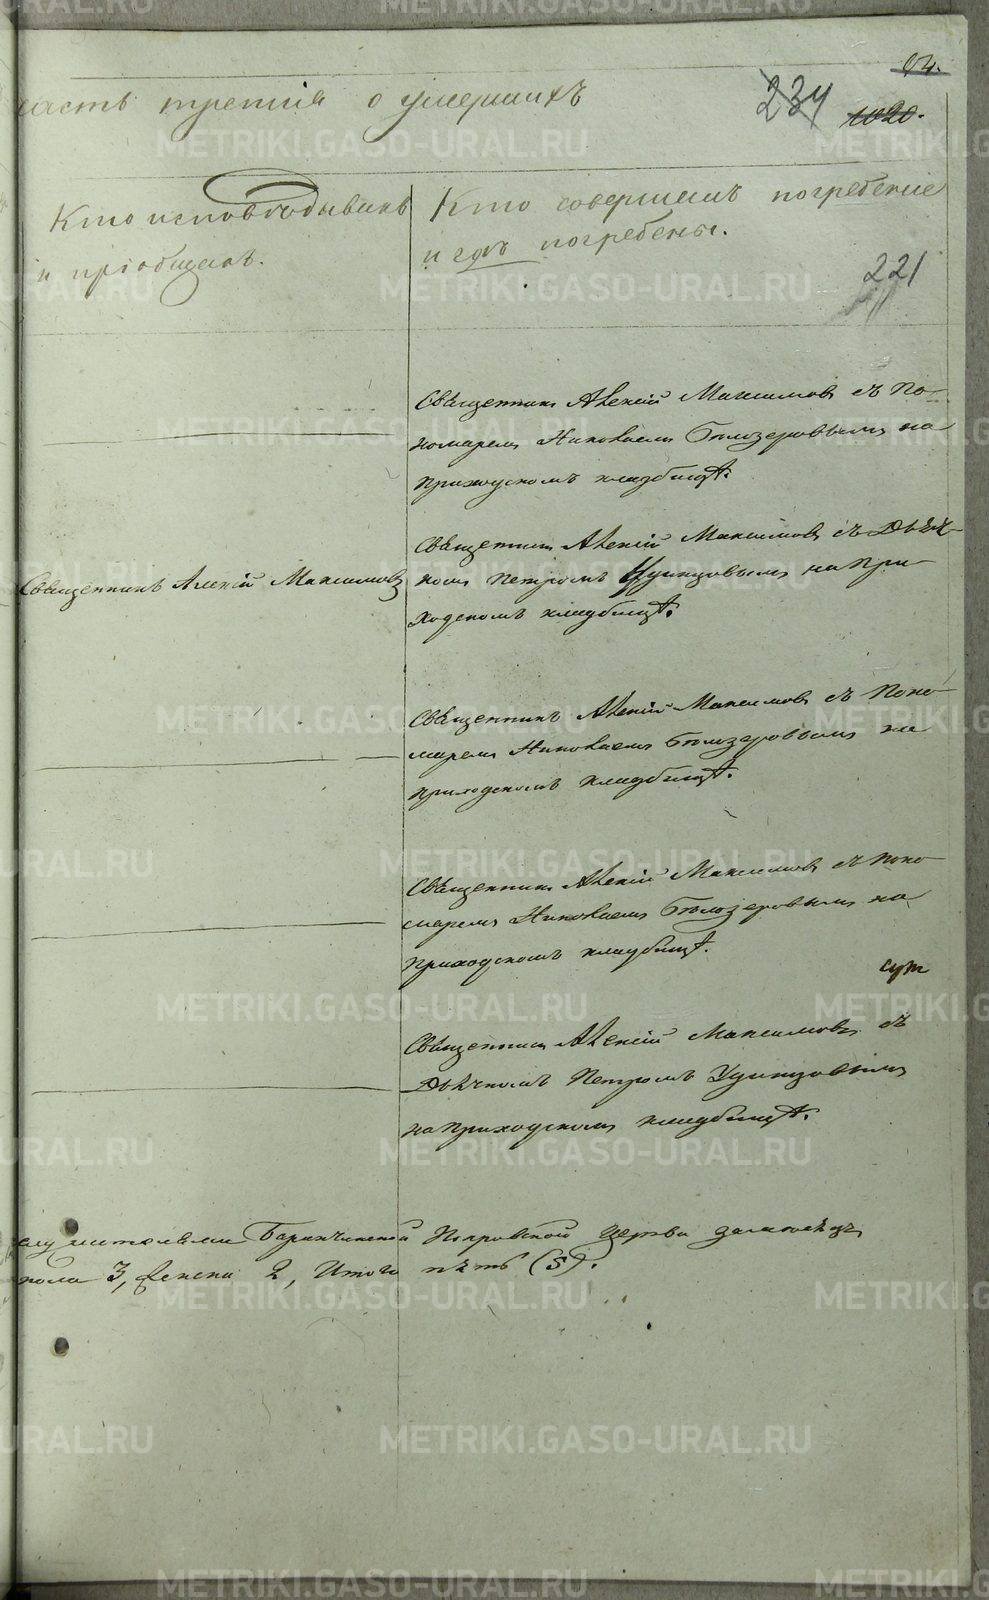 94.
часть третія о умершихъ
234
1020.
Кто исповѣдывалъ
и пріобщалъ.
Кто совершалъ погребеніе
и гдѣ погребены.
221
Священникъ Алексій Максимовъ съ По-
номаремъ Николаемъ Бѣлозеровымъ на
приходскомъ кладбищѣ.
Священникъ Алексій Максимовъ
Священникъ Алексій Максимовъ съ Дьяч-
комъ Петромъ Удинцовымъ на При-
ходскомъ кладбищѣ.
Священникъ Алексій Максимовъ съ Поно-
маремъ Николаемъ Бѣлозеровымъ на
приходскомъ кладбищѣ.
Священникъ Алексій Максимовъ съ Поно-
маремъ Николаемъ Бѣлозеровымъ на
приходскомъ кладбищѣ.
Священникъ Алексій Максимовъ съ
Дьячкомъ Петромъ Удинцовымъ
на приходскомъ кладбищѣ.
Баранчинской Покровской Церкви
пола 3, женска 2, Итого пять (5).
METRIKI.GASO-URAL.RU